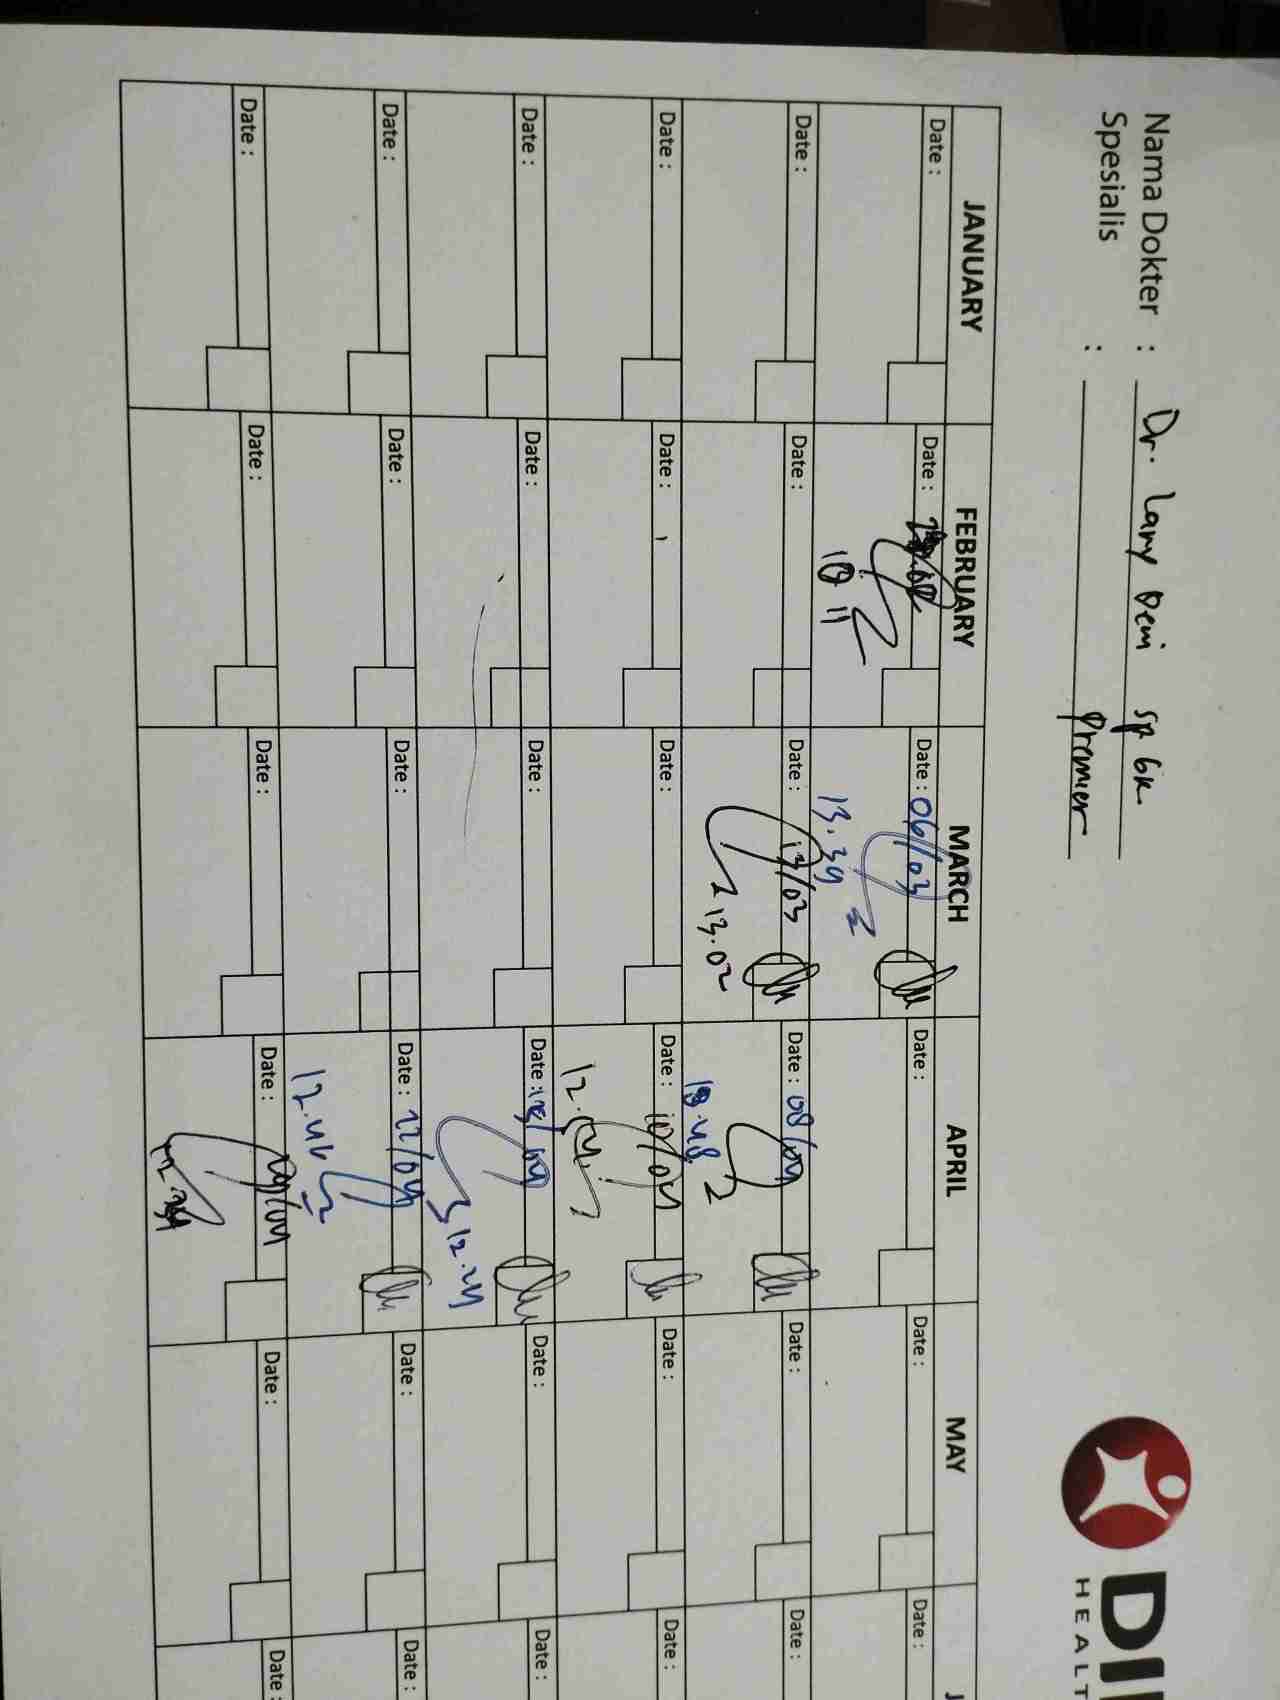 Nama Dokter : Dr. Lany Dewi Sp GK
Spesialis : Premier
DI
HEALT
JANUARY FEBRUARY MARCH APRIL MAY J
Date : Date : Date : 06/03 Date : Date : Date :
13.39
Date : Date : Date : 13/03 Date : 08/04 Date : Date :
13.02
Date : Date : Date : Date : 10/04 Date : Date :
Date : Date : Date : Date : Date : Date :
12.24
Date : Date : Date : Date : 22/04 Date : Date :
12.46
Date : Date : Date : Date : Date : Date :